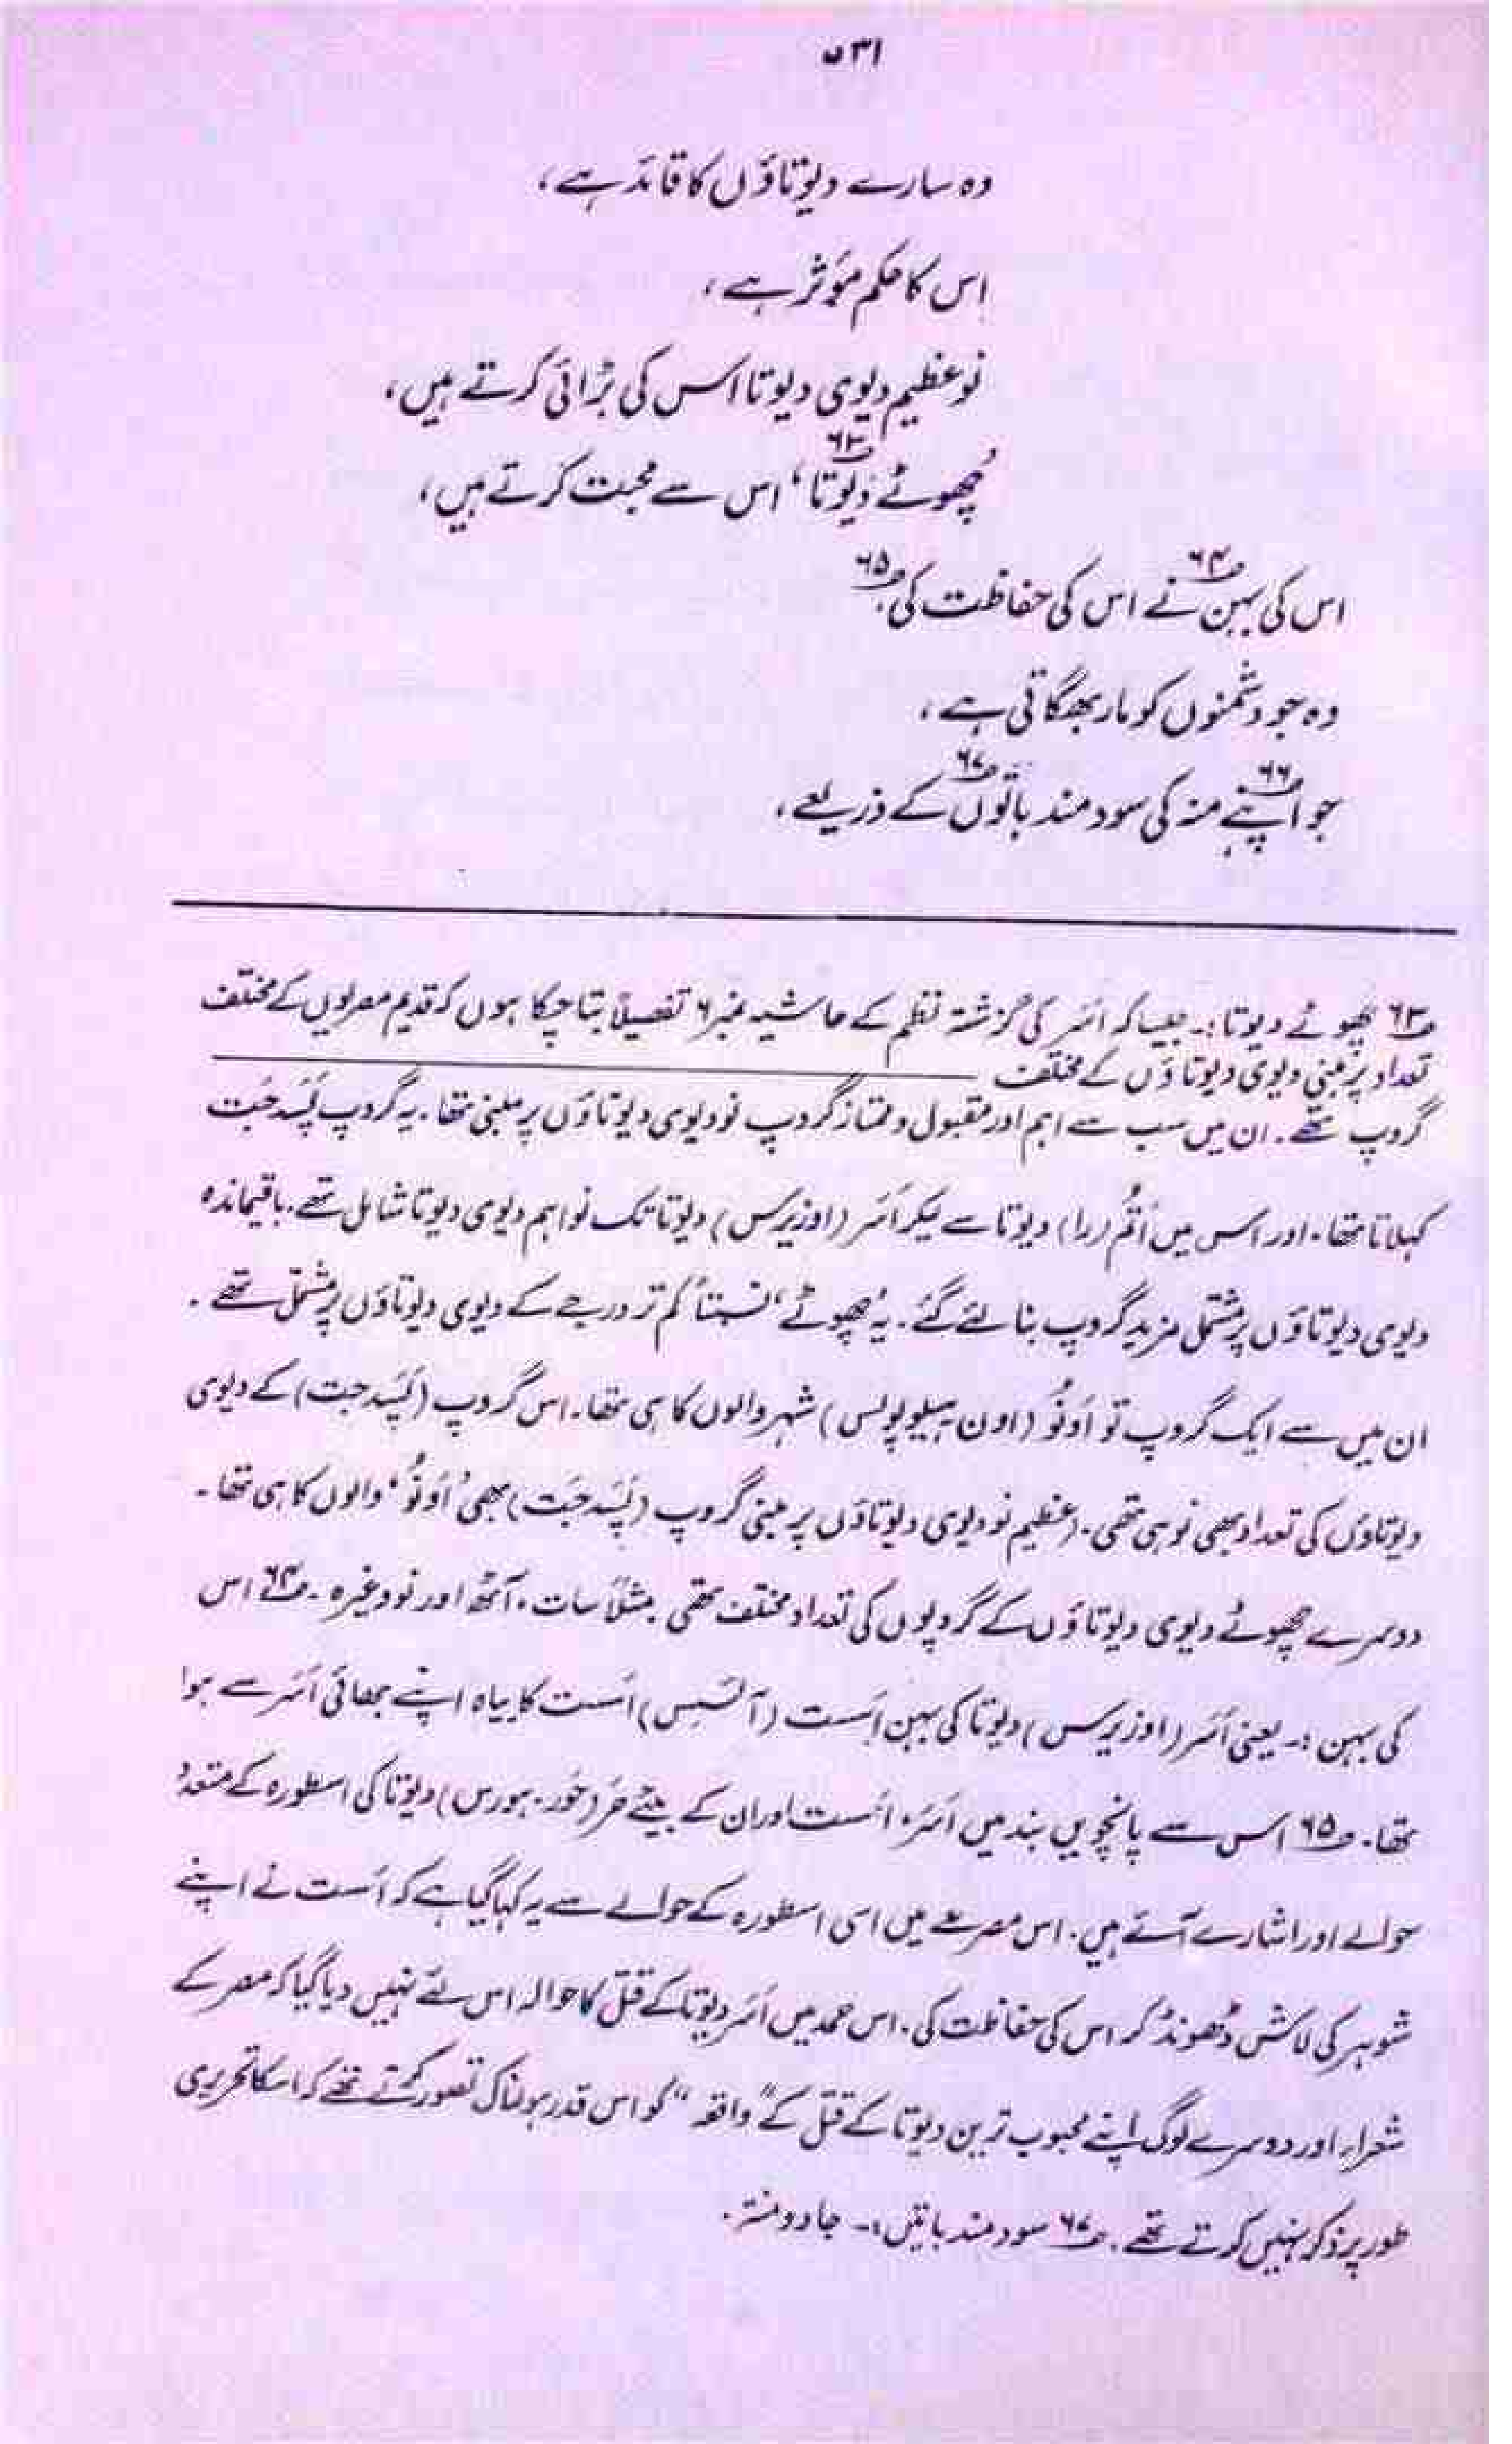 ۵۳۱
وہ سارے دیوتاؤں کا قائد ہے،
اس کا حکم مؤثر ہے،
نو عظیم دیوی دیوتا اس کی بڑائی کرتے ہیں،
'چھوٹے دیوتا' ۶۳ اس سے محبت کرتے ہیں،
اس کی بہن ۶۴ نے اس کی حفاظت کی ۶۵،
وہ جو دشمنوں کو مار بھگاتی ہے،
جو ۶۶ اپنے منہ کی سود مند باتوں ۶۷ کے ذریعے،
۶۳ چھوٹے دیوتا:۔ جیسا کہ اَسَر کی گزشتہ نظم کے حاشیہ نمبر ۶ تفصیلاً بتا چکا ہوں کہ قدیم مصریوں کے مختلف
تعداد پر مبنی دیوی دیوتاؤں کے مختلف
گروپ تھے۔ ان میں سب سے اہم اور مقبول و ممتاز گروپ نو دیوی دیوتاؤں پر مبنی تھا۔ یہ گروپ پَسِدجَت
کہلاتا تھا۔ اور اس میں اَتُم (را) دیوتا سے لیکر اَسَر (اوزیرس) دیوتا تک نو اہم دیوی دیوتا شامل تھے۔ باقیماندہ
دیوی دیوتاؤں پر مشتمل مزید گروپ بنا لئے گئے۔ یہ 'چھوٹے' نسبتاً کم تر درجے کے دیوی دیوتاؤں پر مشتمل تھے۔
ان میں سے ایک گروپ تو اَونُو (اون۔ ہیلیوپولس) شہر والوں کا ہی تھا۔ اس گروپ (پَسِدجت) کے دیوی
دیوتاؤں کی تعداد بھی نو ہی تھی۔ (عظیم نو دیوی دیوتاؤں پر مبنی گروپ (پَسِدجَت) بھی 'اَونُو' والوں کا ہی تھا۔
دوسرے چھوٹے دیوی دیوتاؤں کے گروپوں کی تعداد مختلف تھی مثلاً سات، آٹھ اور نو وغیرہ۔ ۶۴ اس
کی بہن:۔ یعنی اَسَر (اوزیرس) دیوتا کی بہن اَست (آئسِس) اَست کا بیاہ اپنے بھائی اَسَر سے ہوا
تھا۔ ۶۵ اس سے پانچویں بند میں اَسَر، اَست اور ان کے بیٹے حَر (حُور۔ ہورس) دیوتا کی اسطورہ کے متعدد
حوالے اور اشارے آتے ہیں۔ اس مصرعے میں اسی اسطورہ کے حوالے سے یہ کہا گیا ہے کہ اَست نے اپنے
شوہر کی لاش ڈھونڈ کر اس کی حفاظت کی۔ اس حمد میں اَسَر دیوتا کے قتل کا حوالہ اس لئے نہیں دیا گیا کہ مصر کے
شعراء اور دوسرے لوگ اپنے محبوب ترین دیوتا کے قتل کے "واقعہ" کو اس قدر ہولناک تصور کرتے تھے کہ اسکا تحریری
طور پر ذکر نہیں کرتے تھے۔ ۶۷ سود مند باتیں:۔ جادو منتر۔